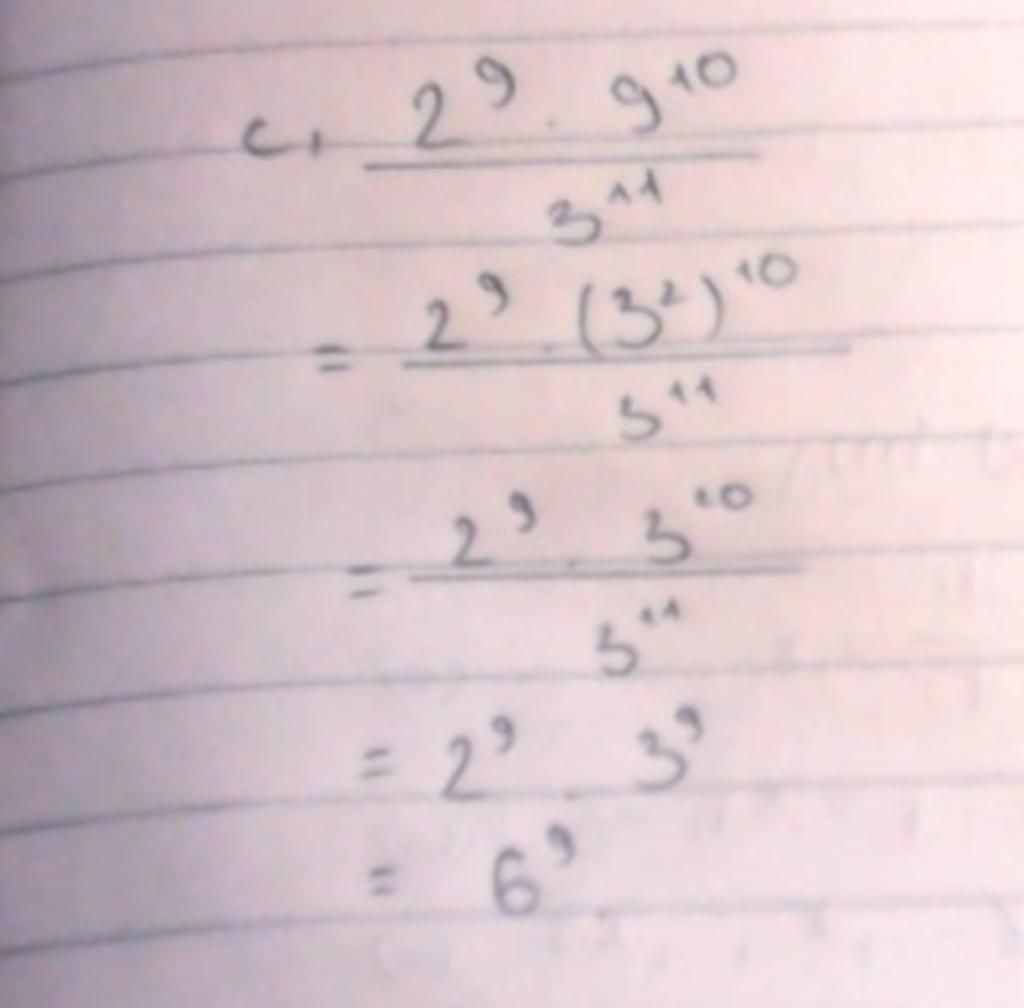 c, 2⁹ . 9¹⁰
3¹¹
= 2⁹ . (3²)¹⁰
3¹¹
= 2⁹ . 3¹⁰
3¹¹
= 2⁹ . 3⁹
= 6⁹